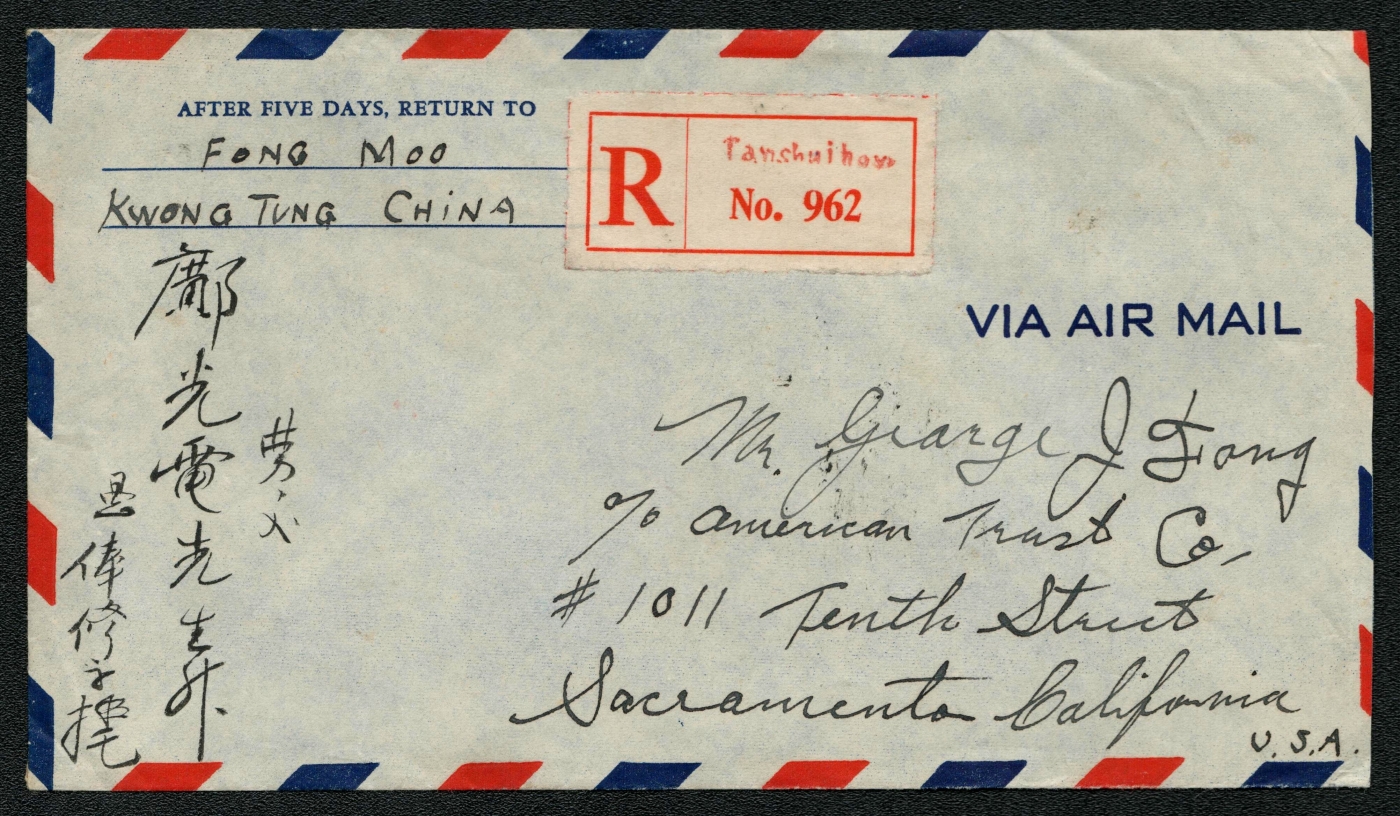 AFTER FIVE DAYS, RETURN TO
FONG MOO
KWONG TUNG CHINA
R
Tanshuihow
No. 962
VIA AIR MAIL
Mr. George J Fong
c/o American Trust Co.
# 1011 Tenth Street
Sacramento California
U.S.A.
費文
鄺光電先生升
俸修